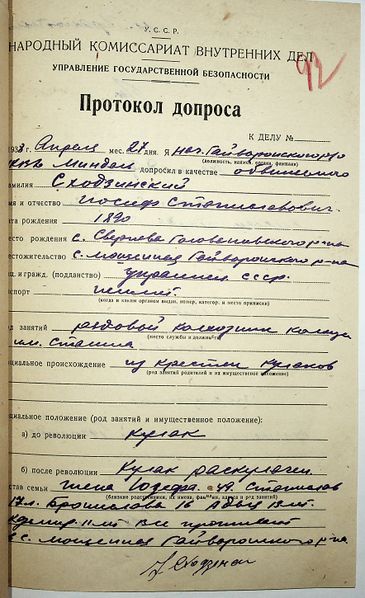 У.С.С.Р.
НАРОДНЫЙ КОМИССАРИАТ ВНУТРЕННИХ ДЕЛ
УПРАВЛЕНИЕ ГОСУДАРСТВЕННОЙ БЕЗОПАСНОСТИ
92
Протокол допроса
К ДЕЛУ №
1938 г. Апреля мес. 27 дня. Я нач. Гайворонского
(должность, наимен. органа, фамилия)
Миндель допросил в качестве обвиняемого
амилия Сходзинский
мя и отчество Иосиф Станиславович
ата рождения 1890
есто рождения с. Голованевского р-на
естожительство с. Мощенная Гайворонского р-на
ац. и гражд. (подданство) украинец СССР
спорт неимеет.
(когда и каким органом выдан, номер, категор. и место прописки)
од занятий рядовой колхозник колхоза
(место службы и должность)
им. Сталина
оциальное происхождение из крестьян кулаков
(род занятий родителей и их имущественное положение)
циальное положение (род занятий и имущественное положение):
а) до революции кулак
б) после революции Кулак раскулачен
став семьи жена Юзефа Станислав
(близкие родственники, их имена, фамилии, адреса и род занятий)
17 л. Бронислава 16 13 лет
11 лет Все проживают
в с. Мощенная Гайворонского р-на